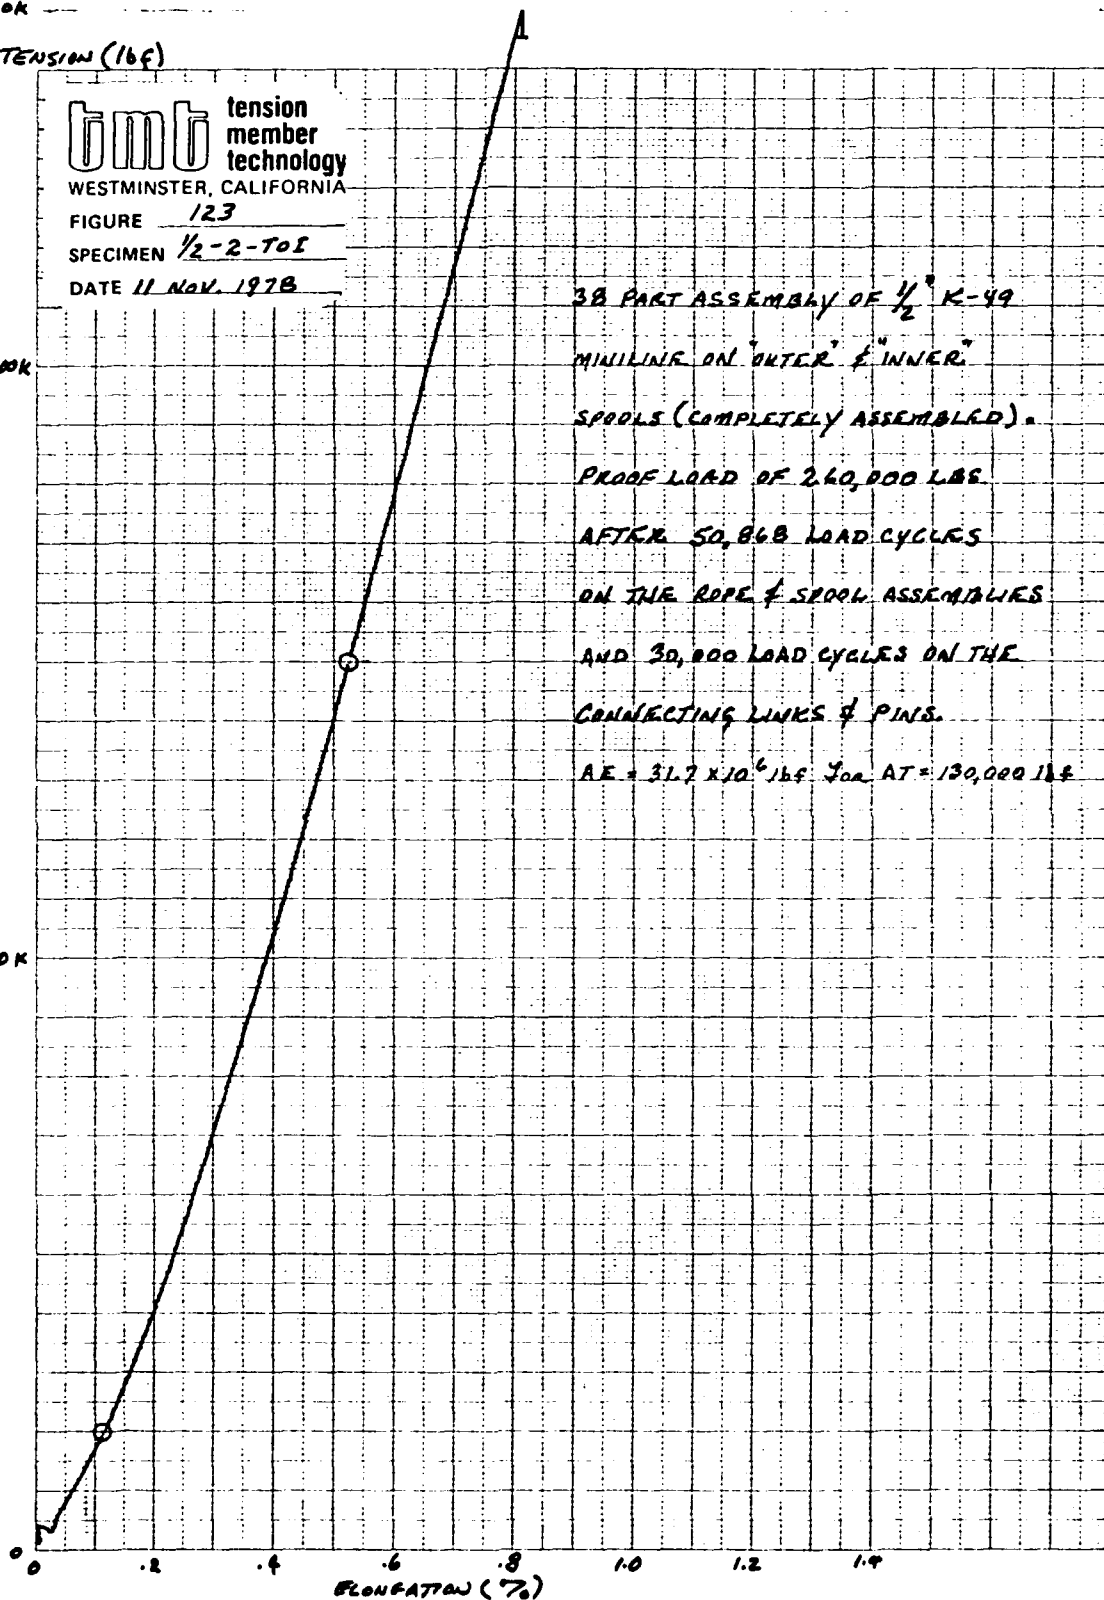 0K
TENSION (lbf)
tmt tension
member
technology
WESTMINSTER, CALIFORNIA
FIGURE 123
SPECIMEN 1/2-2-TOI
DATE 11 NOV. 1978
38 PART ASSEMBLY OF 1/2" K-49
MINILINE ON "OUTER" & "INNER"
SPOOLS (COMPLETELY ASSEMBLED).
PROOF LOAD OF 260,000 LBS
AFTER 50,868 LOAD CYCLES
ON THE ROPE & SPOOL ASSEMBLIES
AND 30,000 LOAD CYCLES ON THE
CONNECTING LINKS & PINS.
AE = 31.7 x 10⁶ lbf For ΔT = 130,000 lbf
00K
0K
0
0 .2 .4 .6 .8 1.0 1.2 1.4
ELONGATION (%)